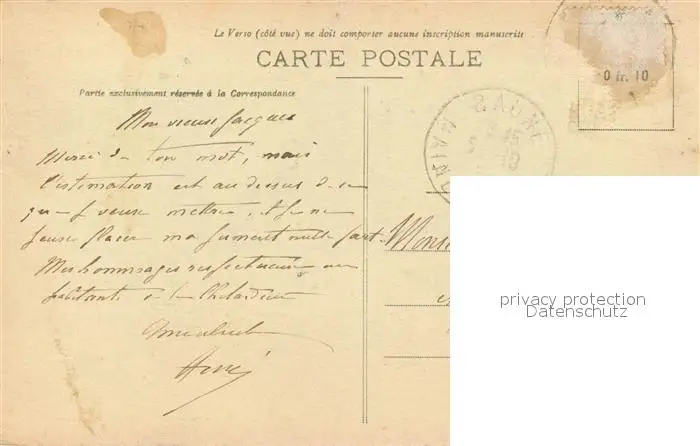 Le Verso (côté vue) ne doit comporter aucune inscription manuscrite
CARTE POSTALE
0 fr. 10
Partie exclusivement réservée à la Correspondance
BAUNE
MAINE
Mon vieux Jacques
Merci de ton mot, mais
l'estimation est au dessus de ce
que je veux mettre, et je ne
peux placer ma jument nulle part.
Mes hommages respectueux aux
habitants de la
Monsieur
Amicalement
privacy protection
Datenschutz